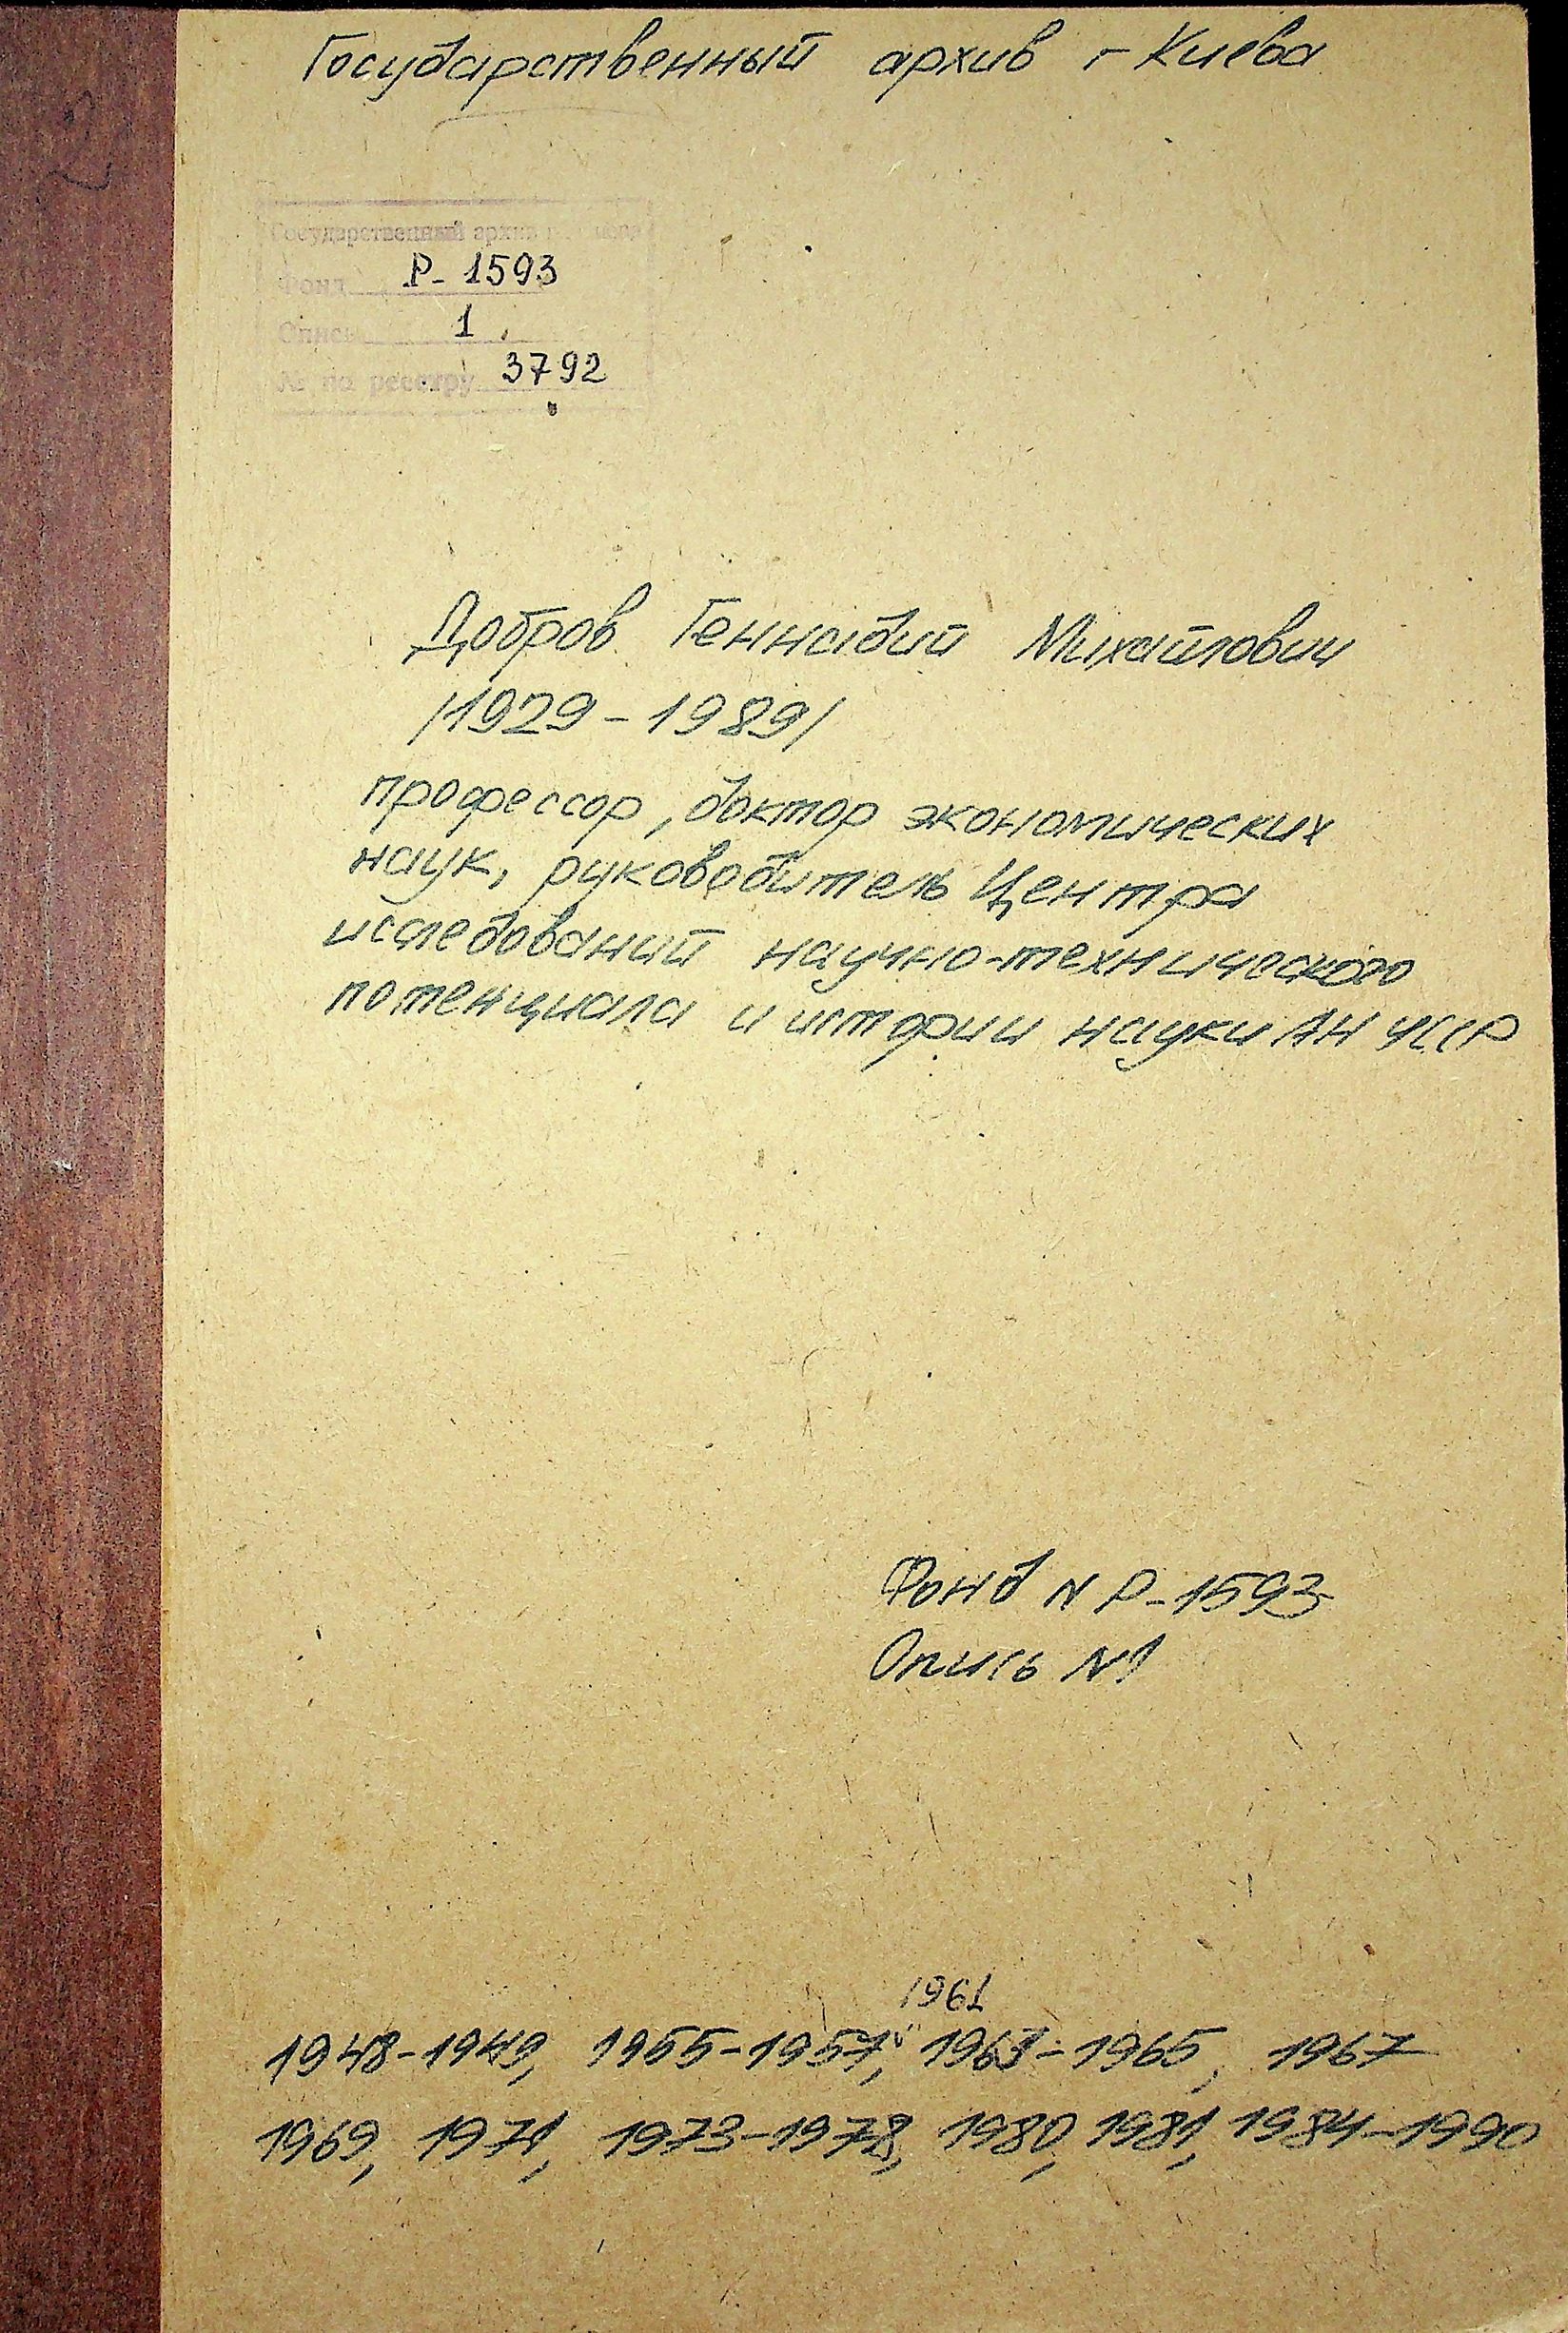 Государственный архив г. Киева
Государственный архив г.
Фонд Р-1593
Опись 1
№ по реестру 3792
Добров Геннадий Михайлович
/1929-1989/
профессор, доктор экономических
наук, руководитель Центра
исследований научно-технического
потенциала и истории науки АН УССР
Фонд N Р-1593
Опись N1
1961
1948-1949, 1955-1957, 1963-1965, 1967
1969, 1971, 1973-1978, 1980, 1981, 1984-1990